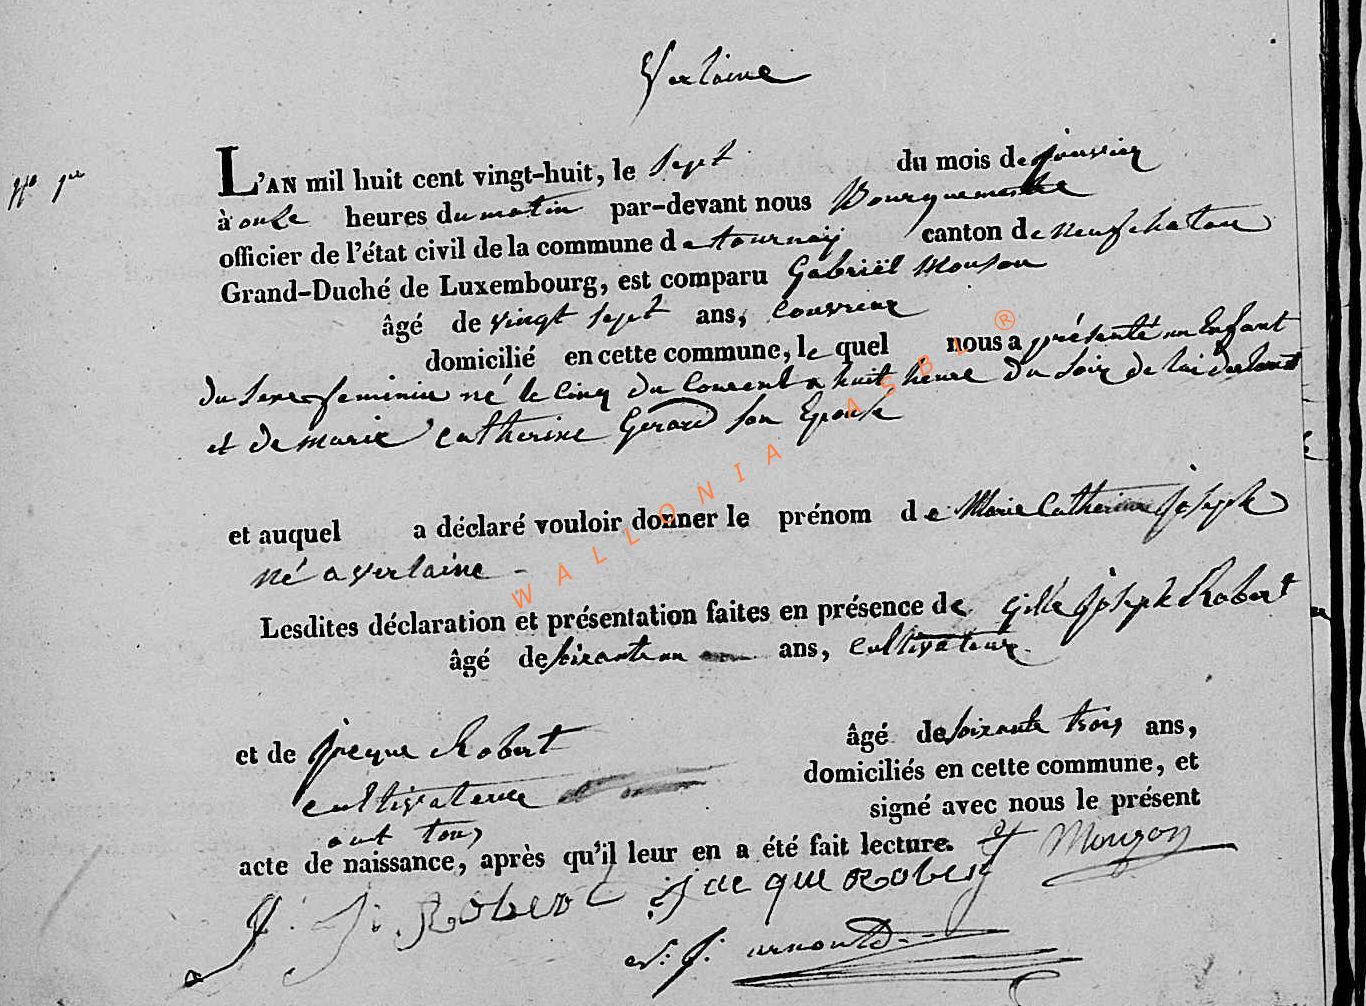 Verlaine
N° 1er
L'AN mil huit cent vingt-huit, le sept du mois de janvier
à onze heures du matin par-devant nous Bourguemestre
officier de l'état civil de la commune de tournay canton de neufchateau
Grand-Duché de Luxembourg, est comparu Gabriël Monson
âgé de vingt sept ans, couvreur
domicilié en cette commune, le quel nous a présenté un Enfant
du Sexe feminin né le cinq du Courent a huit heure du Soir de lui declarant
et de marie catherine Gerard son Epouse
et auquel a déclaré vouloir donner le prénom de Marie Catherine joseph
né a verlaine -
Lesdites déclaration et présentation faites en présence de Gille joseph Robert
âgé de soixante un ans, cultivateur
et de jacque Robert âgé de soixante trois ans,
cultivateur domiciliés en cette commune, et
ont tous signé avec nous le présent
acte de naissance, après qu'il leur en a été fait lecture. G Mouzon
g: j: Robert jacque Robert
j: arnould
WALLONIA ASBL ®